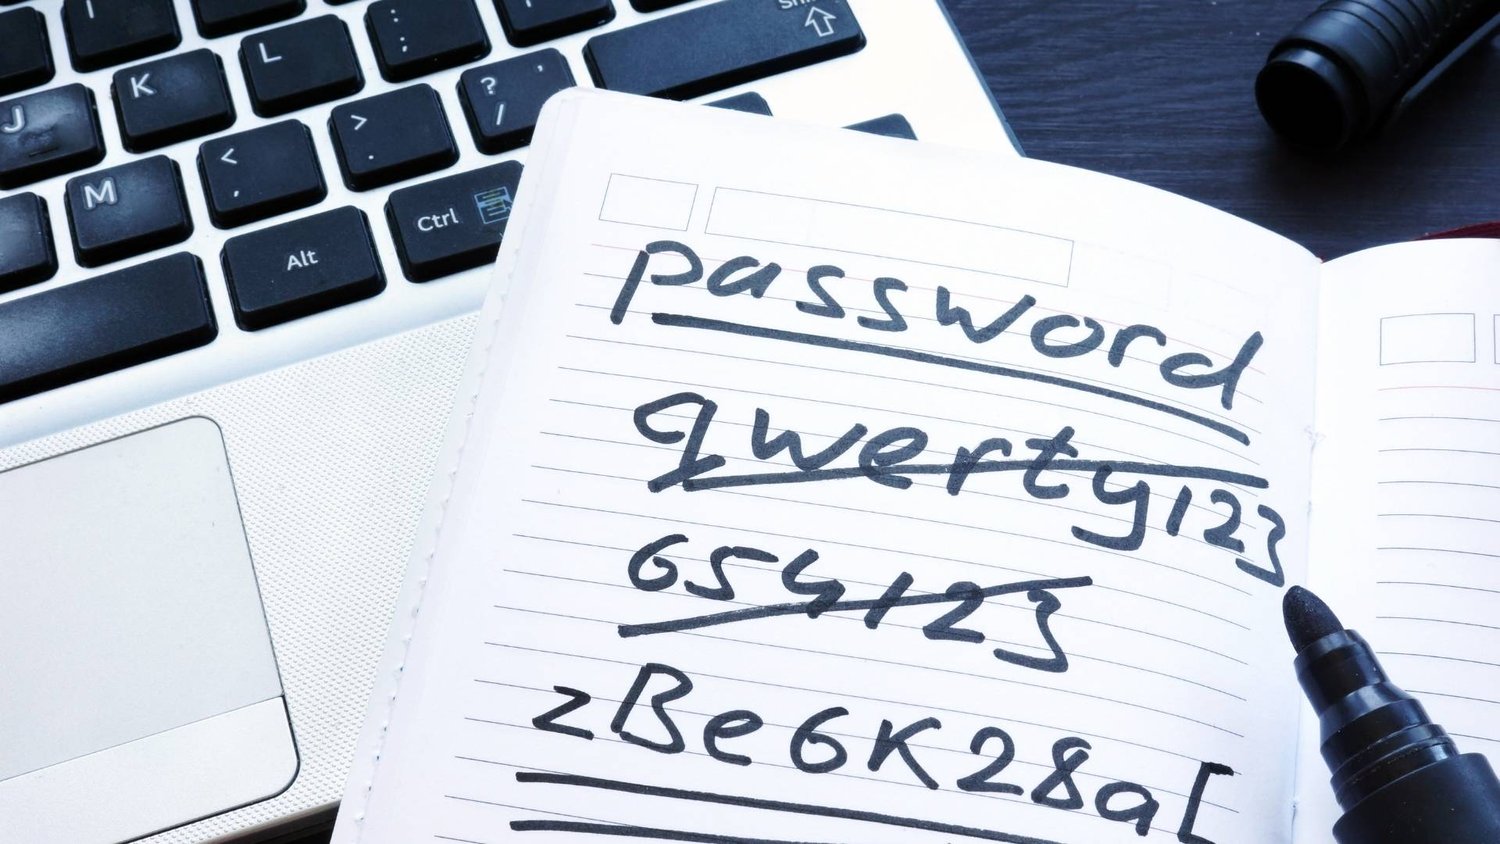 Shi
J K L : ;
? ' /
> .
< ,
M
Ctrl
Alt
password
qwerty123
654123
zBe6K28a[